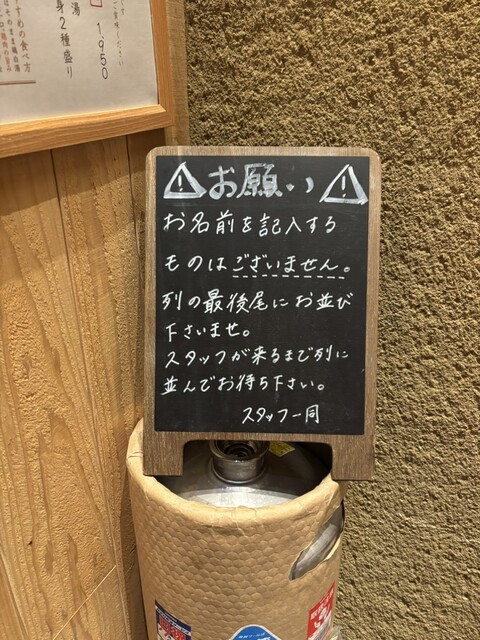 ⚠お願い⚠
お名前を記入する
ものはございません。
列の最後尾にお並び
下さいませ。
スタッフが来るまで列に
並んでお待ち下さい。
スタッフ一同
1,950
身2種盛り
すすめの食べ方